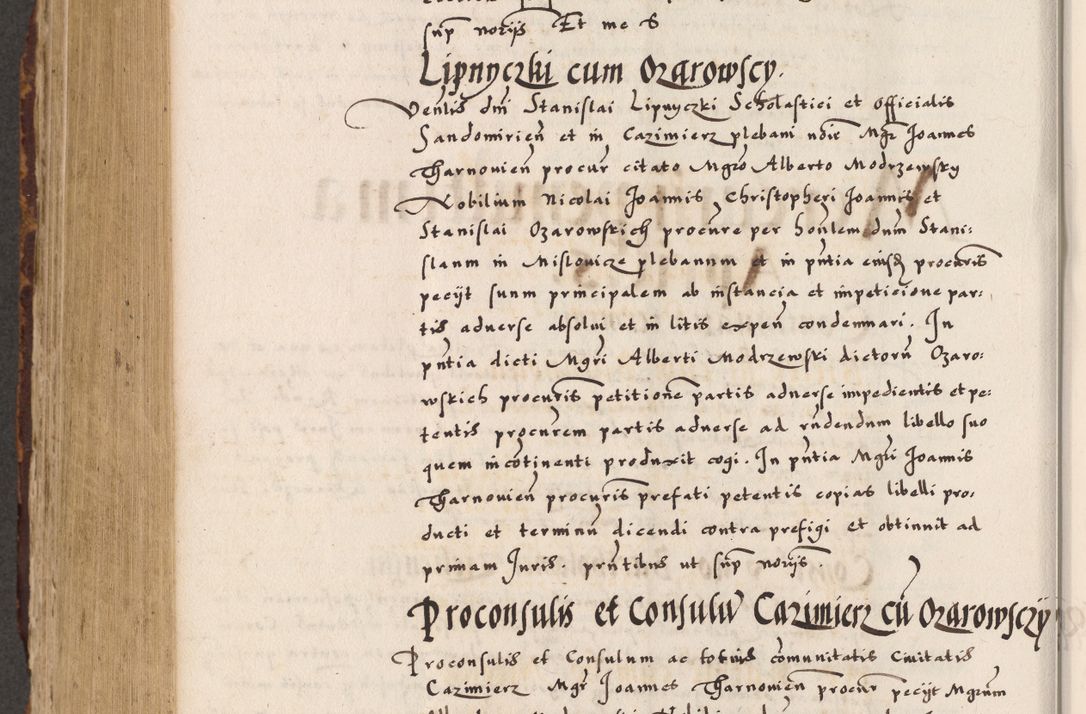 sup notijs Et me S
Lipnyczki cum Ozarowscy.
Venlis dni Stanislai Lipnyczki Scholastici et officialis
Sandomirien et in Cazimierz plebani noie Mgr Joannes
Tharnovien procur citato Mgro Alberto Modrzewsky
Nobilium Nicolai Joannis Christopheri Joannis et
Stanislai Ozarowskich procure per honlem dum Stani:
slaum in Mislovicze plebanum et in pntia eiusd procuris
pecijt suum principalem ab instancia et impeticione par:
tis adverse absolvi et in litis expen condemnari. In
pntia dicti Mgri Alberti Modrzewski dictoru Ozaro:
wskich procuris petitione partis adverse impedientis et pe:
tentis procurem partis adverse ad rndendum libello suo
quem incotinenti produxit cogi. In pntia Mgri Joannis
Tharnovien procuris prefati petentis copias libelli pro:
ducti et terminu dicendi contra prefigi et obtinuit ad
primam Juris. prntibus ut sup notijs.
Proconsulis et Consulu Cazimierz cu Ozarowsczy
Proconsulis et Consulum ac totius comunitatis Civitatis
Cazimierz Mgr Joannes Tharnovien procur pecijt Mgrum